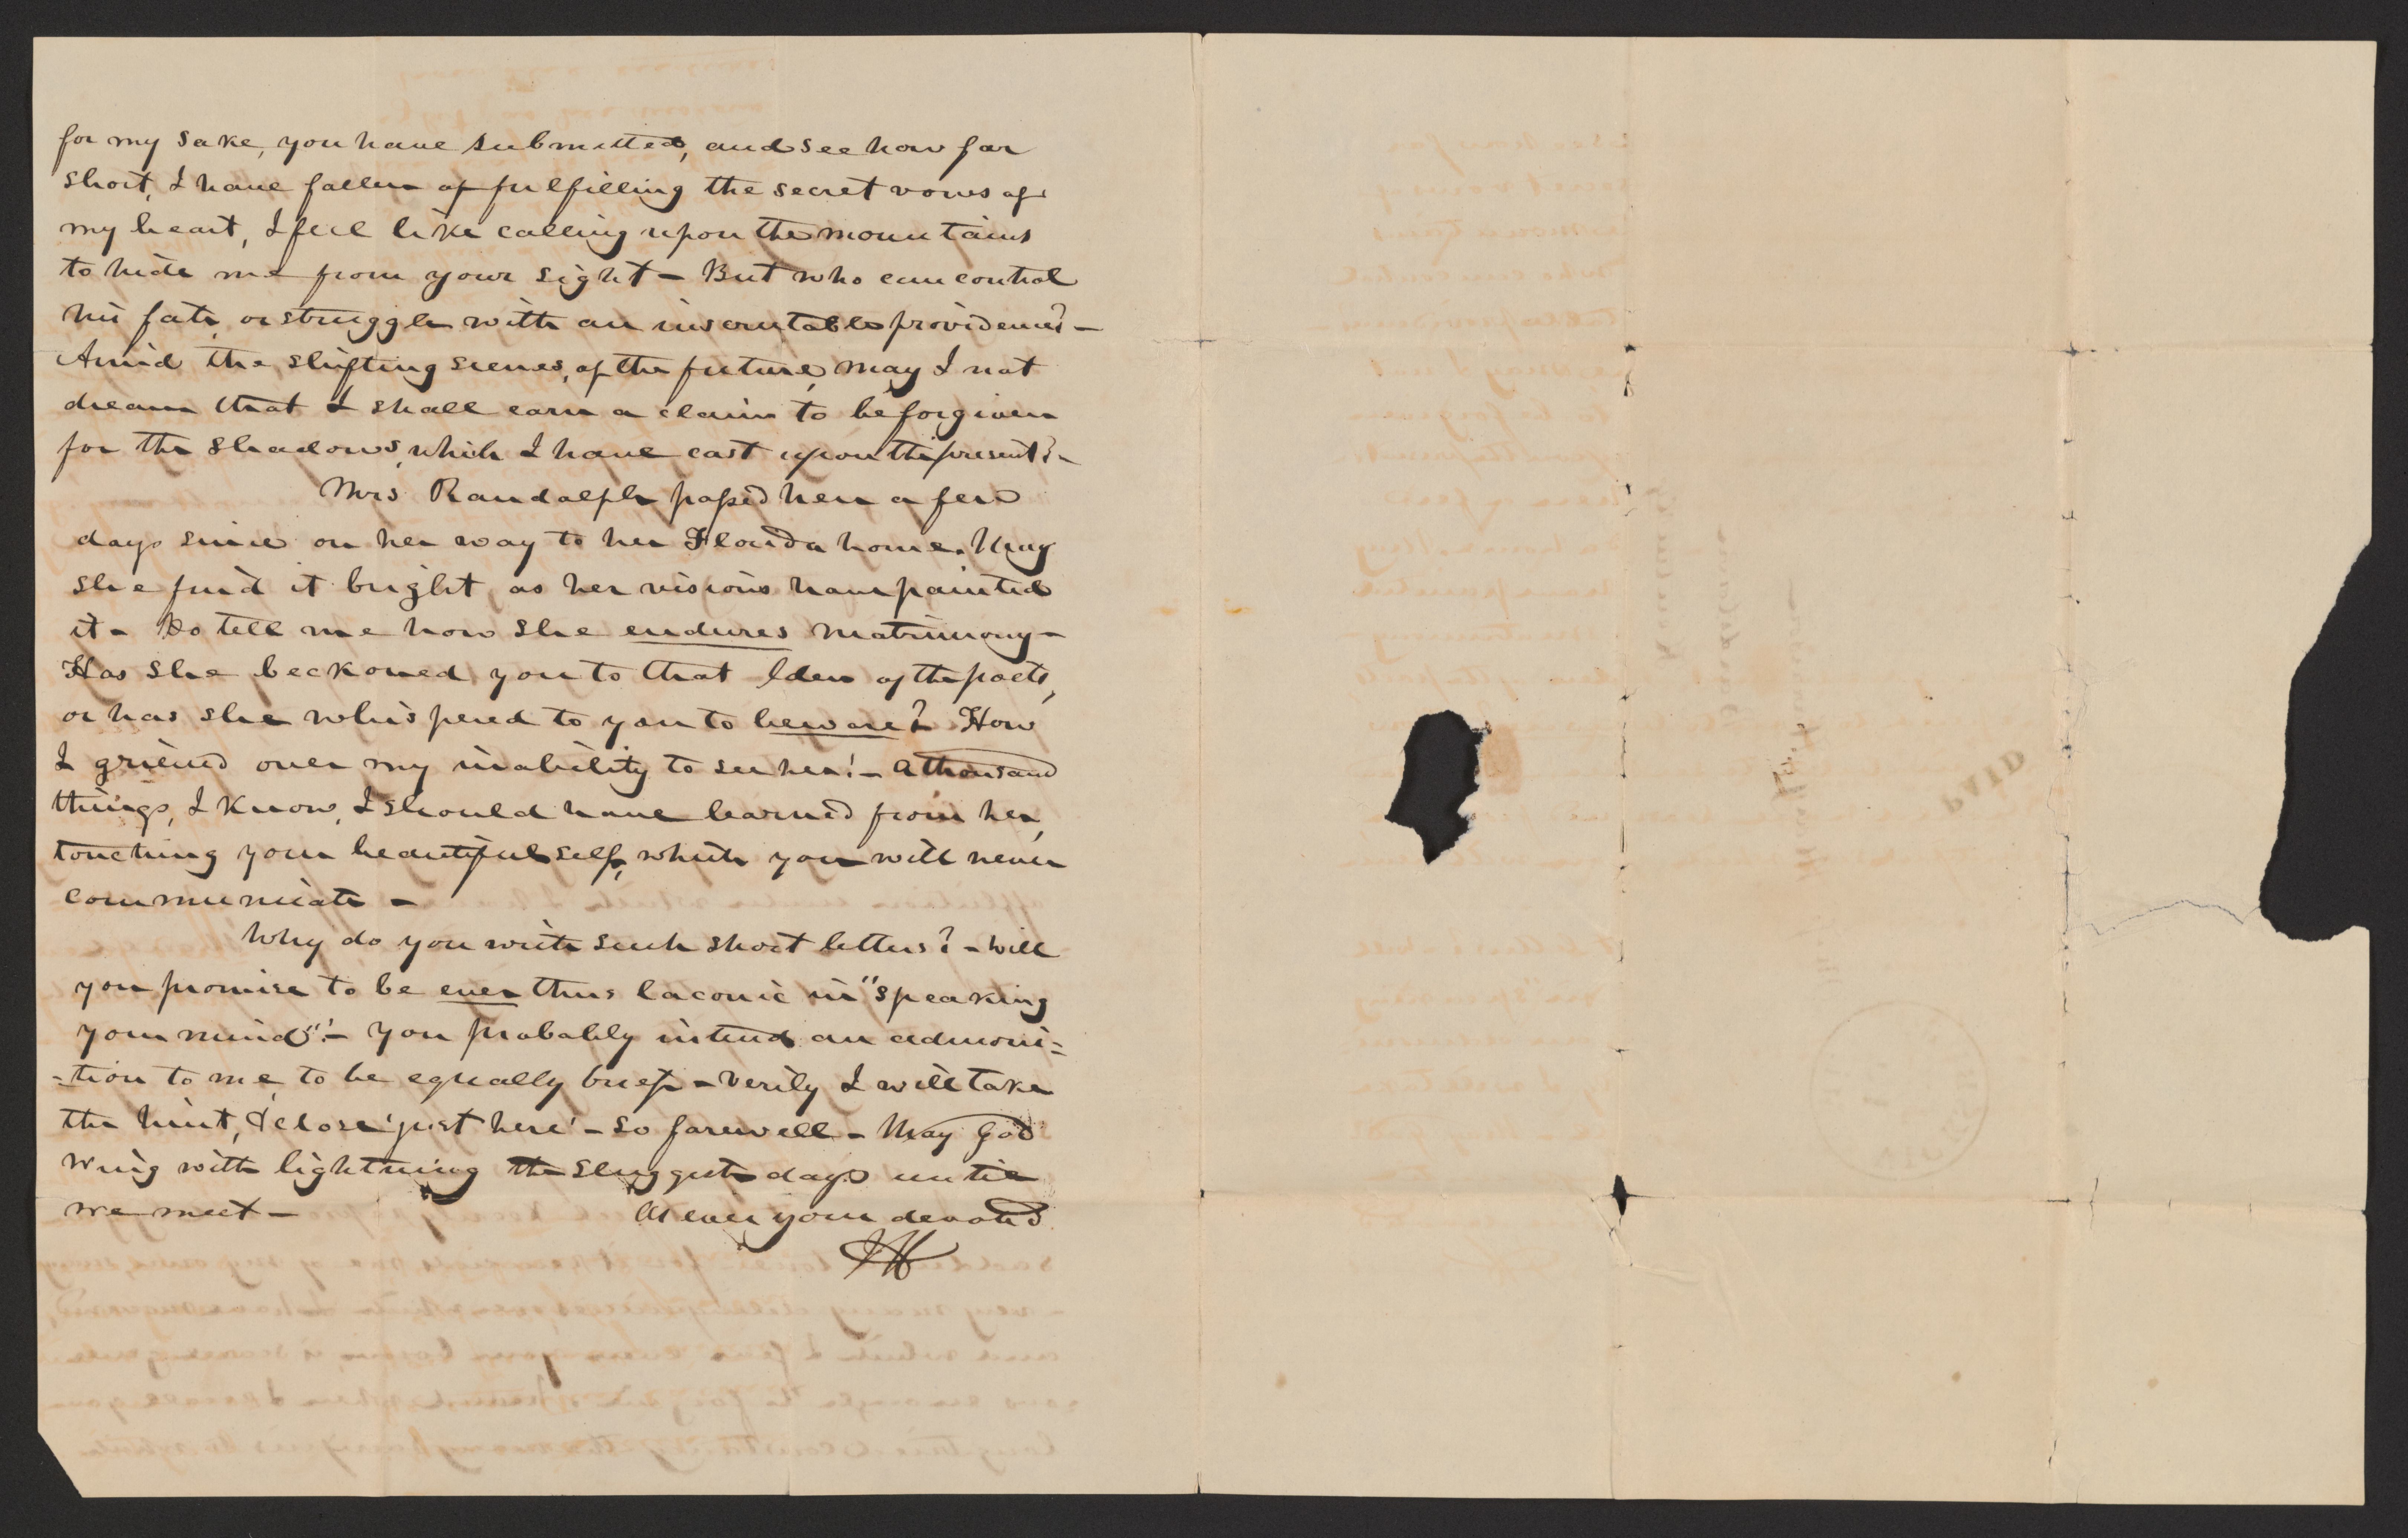 for my sake, you have submitted, and see how far
short, I have fallen of fulfilling the secret vows of
my heart, I feel like calling upon the mountains
to hide me from your sight – But who can control
his fate, or struggle with an inscrutable providence? –
Amid the shifting scenes, of the future, may I not
dream that I shall earn a claim to be forgiven
for the shadows, which I have cast upon the present? –
Mrs Randolph passed here a few
days since on her way to her Florida home. May
she find it bright, as her visions have painted
it – Do tell me how she endures matrimony –
Has she beckoned you to that Eden of the poets,
or has she whispered to you to beware? How
I grieved over my inability to see her! – A thousand
things, I know, I should have learned from her,
touching your beautiful self, which you will never
communicate –
Why do you write such short letters? – Will
you promise to be ever thus laconic in "speaking
your mind"! – You probably intend an admoni=
-tion to me, to be equally brief – Verily I will take
the hint, & close 'just here' – So farewell – May God
wing with lightning the sluggish days until
we meet –    As ever your devoted
PAID